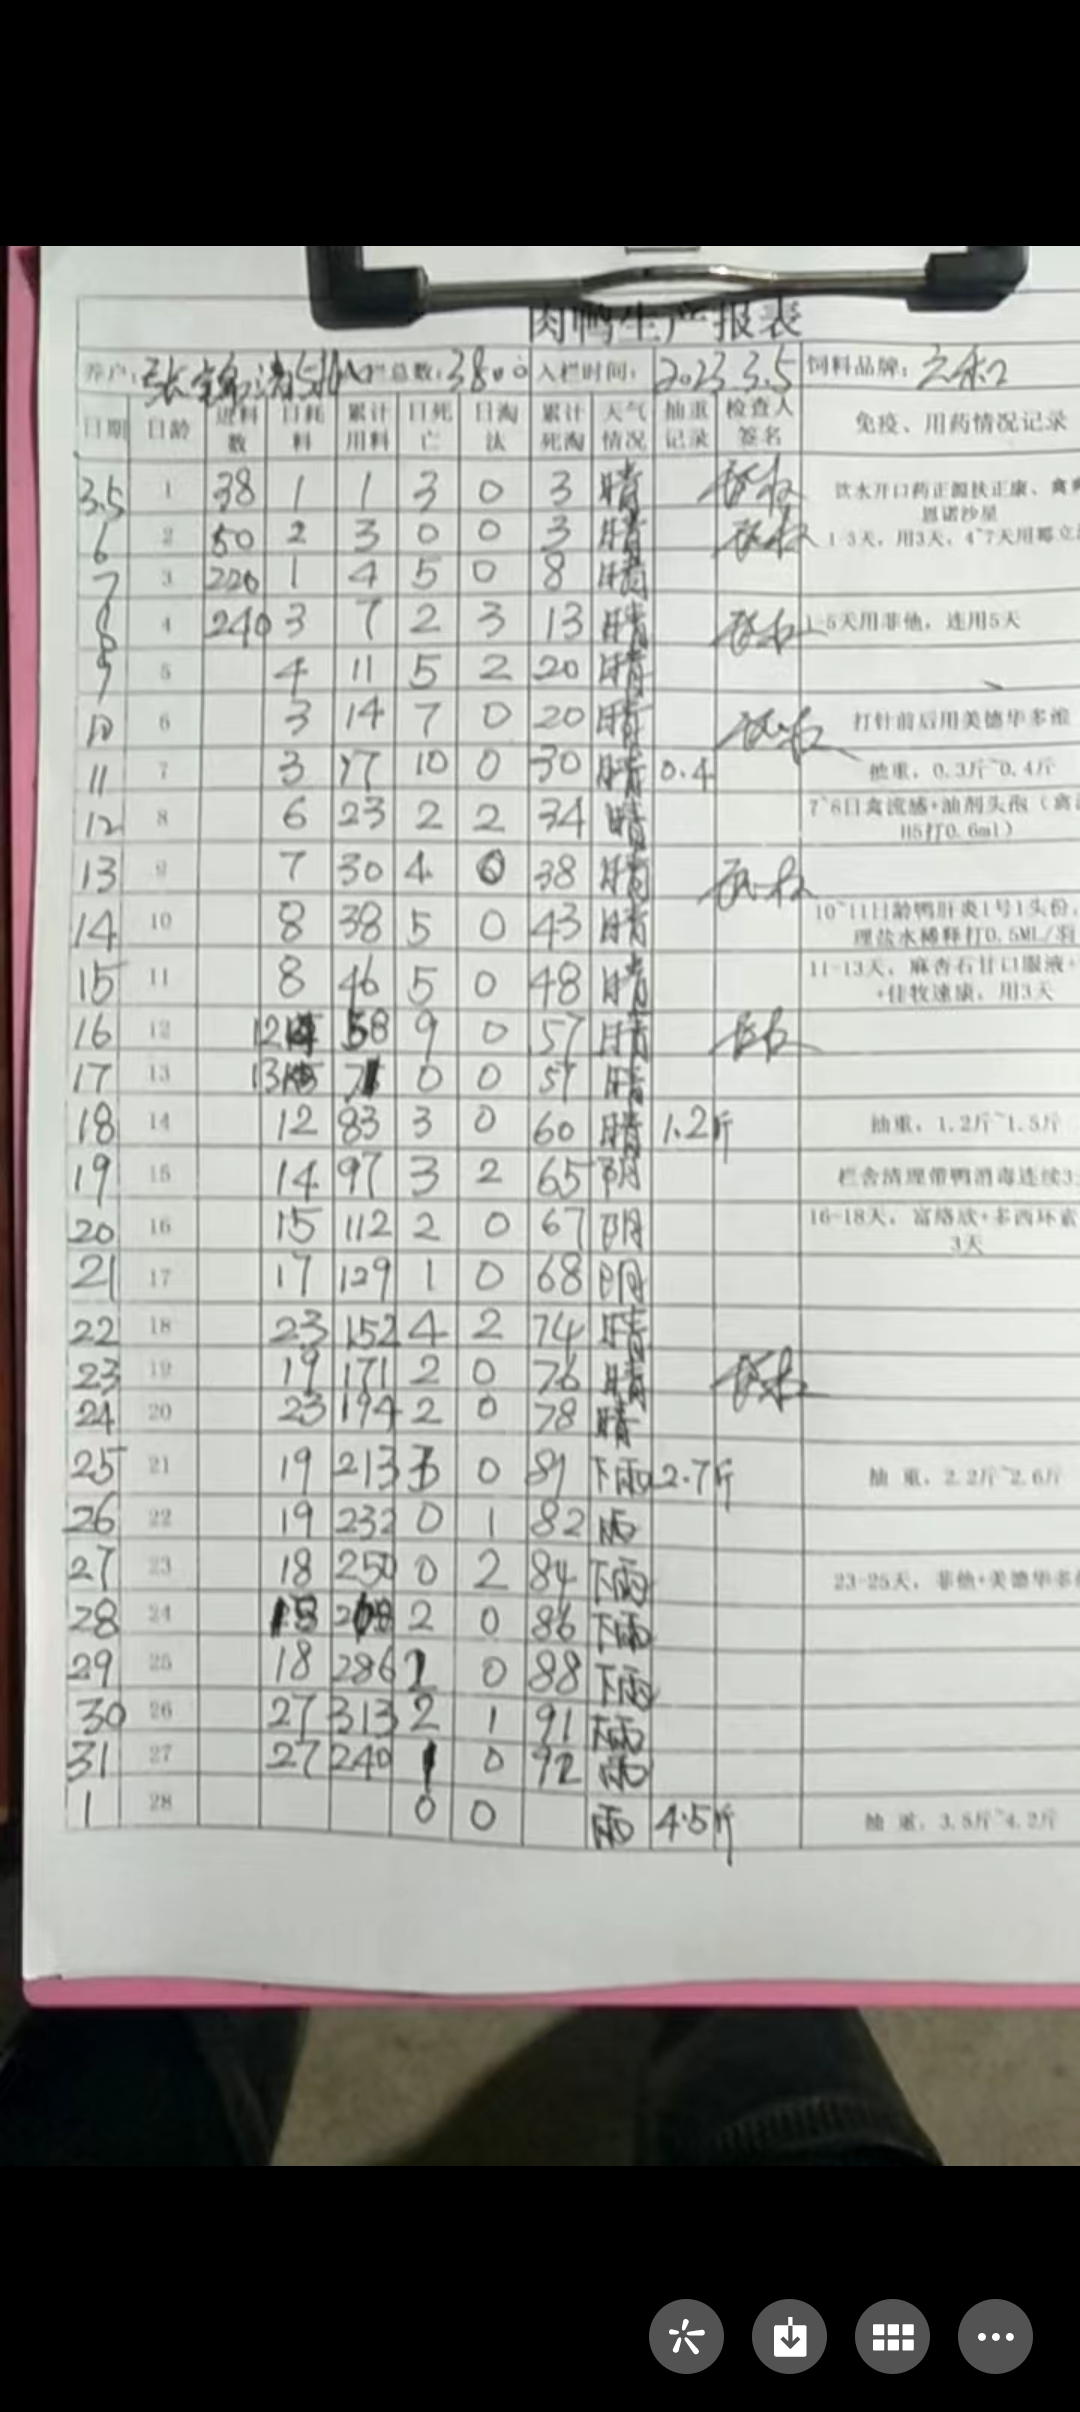 肉鸭生产报表
养户: 张锦清5批 入栏总数:3800 入栏时间: 2023.3.5 饲料品牌: 六和
日期 日龄 进料数 日耗料 累计用料 日死亡 日淘汰 累计死淘 天气情况 抽重记录 检查人签名 免疫、用药情况记录
3.5 1 38 1 1 3 0 3 晴 饮水开口药正源扶正康、禽
恩诺沙星
6 2 50 2 3 0 0 3 晴 1-3天,用3天,4~7天用
7 3 220 1 4 5 0 8 晴
8 4 240 3 7 2 3 13 晴 1-5天用菲他,连用5天
9 5 4 11 5 2 20 晴
10 6 3 14 7 0 20 晴 打针前后用美德华多维
11 7 3 17 10 0 30 晴 0.4 抽重,0.3斤~0.4斤
12 8 6 23 2 2 34 晴 7~8日禽流感+油剂头孢(禽
H5打0.6ml)
13 9 7 30 4 0 38 晴
14 10 8 38 5 0 43 晴 10~11日龄鸭肝炎1号1头份,
理盐水稀释打0.5ML/羽
15 11 8 46 5 0 48 晴 11-13天,麻杏石甘口服液+
+佳牧速康,用3天
16 12 12 58 9 0 57 晴
17 13 13 71 0 0 57 晴
18 14 12 83 3 0 60 晴 1.2斤 抽重,1.2斤~1.5斤
19 15 14 97 3 2 65 阴 栏舍清理带鸭消毒连续3
20 16 15 112 2 0 67 阴 16-18天,富络欣+多西环素
3天
21 17 17 129 1 0 68 阴
22 18 23 152 4 2 74 晴
23 19 19 171 2 0 76 晴
24 20 23 194 2 0 78 晴
25 21 19 213 3 0 81 下雨 2.7斤 抽 重,2.2斤~2.6斤
26 22 19 232 0 1 82 雨
27 23 18 250 0 2 84 下雨 23-25天,菲他+美德华多
28 24 18 268 2 0 86 下雨
29 25 18 286 2 0 88 下雨
30 26 27 313 2 1 91 下雨
31 27 27 240 1 0 92 雨
1 28 0 0 雨 4.5斤 抽 重,3.8斤~4.2斤